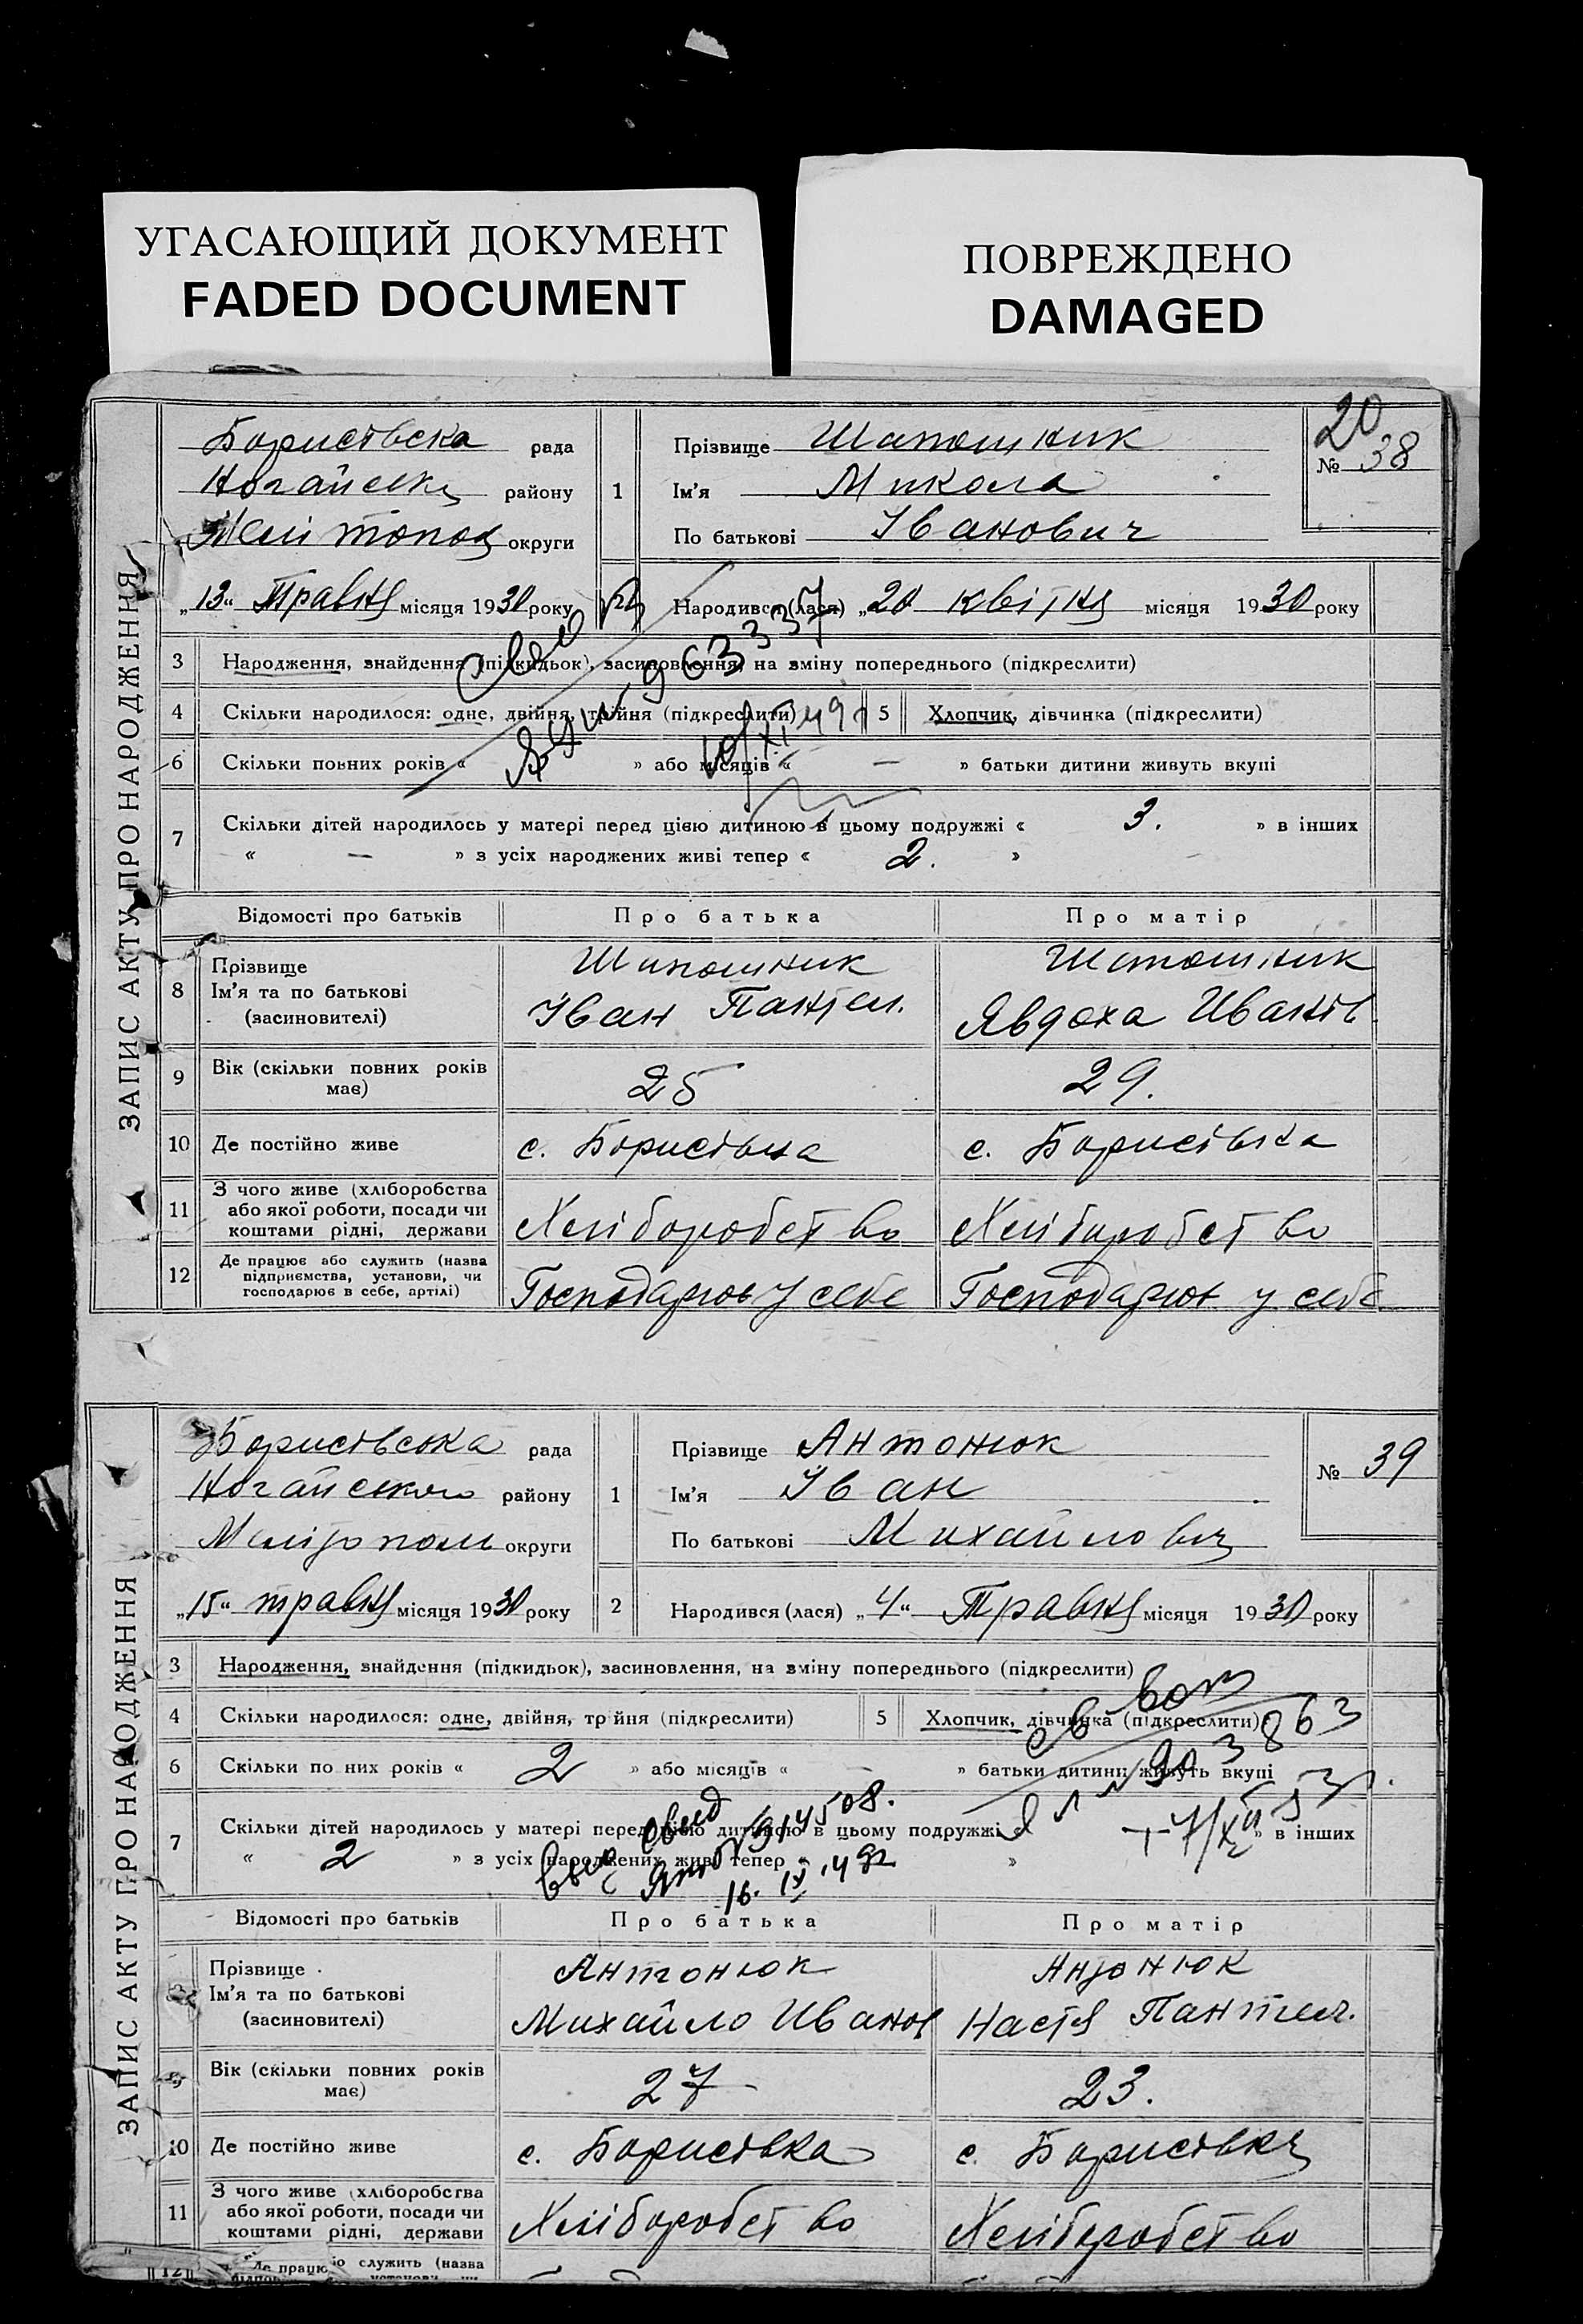 УГАСАЮЩИЙ ДОКУМЕНТ
FADED DOCUMENT
ПОВРЕЖДЕНО
DAMAGED
ЗАПИС АКТУ ПРО НАРОДЖЕННЯ
Бориствска рада
Ногайськ району
Мелітопол округи
„13“ Травня місяця 1930 року
1
Прізвище Шапошник
Ім'я Микола
По батькові Іванович
20
№ 38
Народився (лася) „20 квітня місяця 1930 року
3 Народження, знайдення (підкидьок), засиновлення, на зміну попереднього (підкреслити)
4 Скільки народилося: одне, двійня, трійня (підкреслити) 5 Хлопчик, дівчинка (підкреслити)
6 Скільки повних років « » або місяців « — » батьки дитини живуть вкупі
7 Скільки дітей народилось у матері перед цією дитиною в цьому подружжі « 3. » в інших
« — » з усіх народжених живі тепер « 2. »
Відомості про батьків Про батька Про матір
8 Прізвище Ім'я та по батькові (засиновителі)
Шапошник Шапошник
Іван Пантел. Явдоха Иванів
9 Вік (скільки повних років має) 25 29.
10 Де постійно живе с. Бористівка с. Бористівка
11 З чого живе (хліборобства або якої роботи, посади чи коштами рідні, держави Хліборобство Хліборобство
12 Де працює або служить (назва підприємства, установи, чи господарює в себе, артілі) Господарює у себе Господарює у себе
ЗАПИС АКТУ ПРО НАРОДЖЕННЯ
Бориствська рада
Ногайського району
Мелітополь округи
„15“ травня місяця 1930 року
1
Прізвище Антонюк
Ім'я Іван
По батькові Михайлович
№ 39
2 Народився (лася) „4“ Травня місяця 1930 року
3 Народження, знайдення (підкидьок), засиновлення, на зміну попереднього (підкреслити)
4 Скільки народилося: одне, двійня, трійня (підкреслити) 5 Хлопчик, дівчинка (підкреслити)
6 Скільки повних років « 2 » або місяців « — » батьки дитини живуть вкупі
7 Скільки дітей народилось у матері перед цією дитиною в цьому подружжі « » в інших
« 2 » з усіх народжених живі тепер « »
16. IX. 49
Відомості про батьків Про батька Про матір
Прізвище Ім'я та по батькові (засиновителі)
Антонюк Антонюк
Михайло Иванов Настя Пантел.
9 Вік (скільки повних років має) 27 23.
10 Де постійно живе с. Бориствка с. Бориствка
11 З чого живе (хліборобства або якої роботи, посади чи коштами рідні, держави Хліборобство Хліборобство
12 Де працю служить (назва